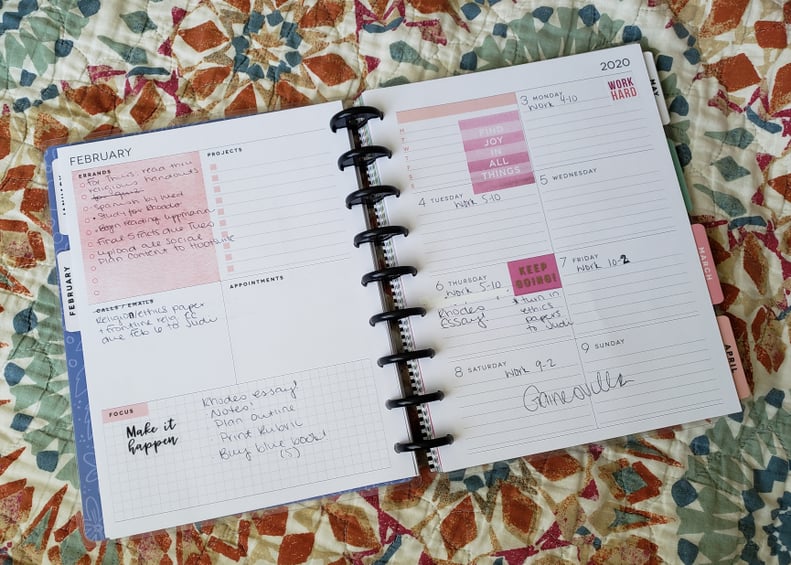 FEBRUARY
ERRANDS
For Thurs read thru
religious handouts
Spanish by Wed
Study for Rhodes
Begin reading Lippmann
Final 5 facts due Tues
Upload ale social
plan content to Hootsuite
PROJECTS
CALLS / EMAILS
Religion/ethics paper
+ frontline relig
due Feb 6 to Judi
APPOINTMENTS
FOCUS
Make it
happen
Rhodes essay!
Notes!
Plan outline
Print Rubric
Buy blue book!
(5)
FEBRUARY
2020
WORK
HARD
M
T
W
T
F
S
S
FIND
JOY
IN
ALL
THINGS
3 MONDAY
Work 4-10
4 TUESDAY
Work 5-10
5 WEDNESDAY
6 THURSDAY
Work 5-10
Rhodes
Essay!
KEEP
GOING!
* turn in
ethics
papers
to Judi
7 FRIDAY
Work 10-2
8 SATURDAY
Work 9-2
9 SUNDAY
Gainesville
MAY
MARCH
APRIL